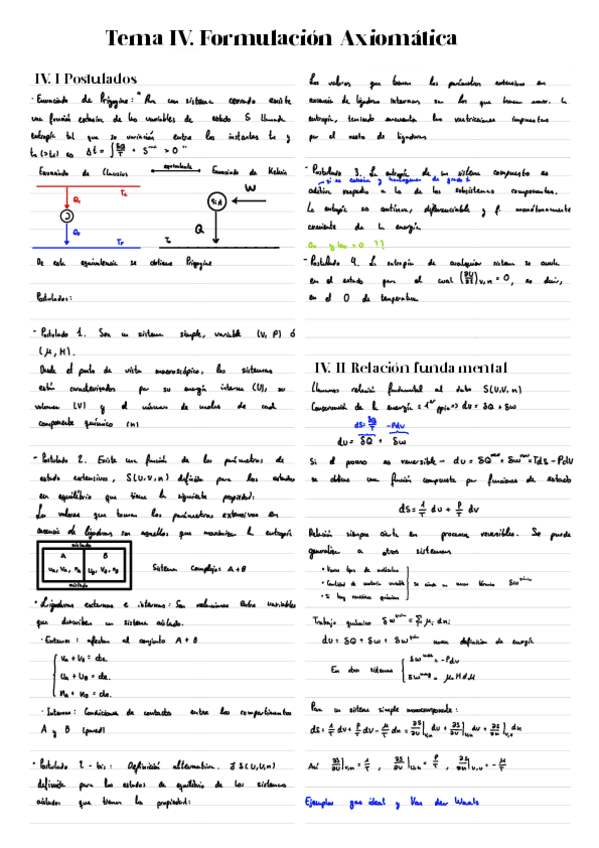 Tema IV. Formulación Axiomática
IV. I Postulados
· Enunciado de Prigogine: "Para un sistema cerrado existe
una función extensiva de las variables de estado S llamada
entropía tal que su variación entre los instantes t₁ y
es Δt = ∫ δQ/T + Sⁱⁿᵗ > 0 "
Enunciado de Clausius equivalente Enunciado de Kelvin
Q₁
Q₂
W
Sist
Q
De esta equivalencia se obtiene Prigogine
Postulados:
- Postulado 1. Sea un sistema simple, variable (V, P) ó
(μ, H).
Desde el punto de vista macroscópico, los sistemas
están caracterizados por su energía interna (U), su
volumen (V) y el número de moles de cada
componente químico (n)
- Postulado 2. Existe una función de los parámetros de
estado extensivos, S(U,V,n) definida para los estados
en equilibrio que tiene la siguiente propiedad:
Los valores que toman los parámetros extensivos en
ausencia de ligaduras son aquellos que maximizan la entropía
aislado
A B
U_A, V_A, n_A U_B, V_B, n_B
aislado
Sistema Complejo: A+B
• Ligaduras externas e internas: Son relaciones entre variables
que describen un sistema aislado.
· Externas: afectan al conjunto A + B
V_A + V_B = cte.
U_A + U_B = cte.
n_A + n_B = cte.
· Internas: Condiciones de contacto entre los compartimentos
A y B (pared)
• Postulado 2 - bis: Definición alternativa. ∃ S(U,V,n)
definida para los estados de equilibrio de los sistemas
aislados que tienen la propiedad:
Los valores que toman los parámetros extensivos en
ausencia de ligaduras internas son los que hacen max. la
entropía, teniendo en cuenta las restricciones impuestas
por el resto de ligaduras
- Postulado 3. La entropía de un sistema compuesto es
si es extensiva y homogénea de grado 1
aditiva respecto a la de los subsistemas componentes.
La entropía es continua, diferenciable y f. monótonamente
creciente de la energía
- Postulado 4. La entropía de cualquier sistema se anula
en el estado para el cual (∂U/∂S)V,n = 0, es decir,
en el 0 de temperatura
IV. II Relación fundamental
Llamamos relación fundamental al dato S(U,V,n)
Conservación de la energía = 1er ppio => dU = δQ + δW
dS = δQ/T -PdV
dU = δQ + δW
Si el proceso es reversible → dU = δQʳᵉᵛ + δWʳᵉᵛ = TdS - PdV
se obtiene una función compuesta por funciones de estado
dS = 1/T dU + P/T dV
Relación siempre cierta en procesos reversibles. Se puede
generalizar a otros sistemas
• Varios tipos de moléculas
• Cantidad de materia variable
• Si hay reacciones químicas
se añade un nuevo término δWᑫᵘⁱᵐ
Trabajo químico δWᑫᵘⁱᵐ = Σ μᵢ dnᵢ
dU = δQ + δW + δWᑫᵘⁱᵐ nueva definición de energía
En otros sistemas
δWᵐᵉᶜ = -PdV
δWᵐᵃᵍ = μ₀HdM
Para un sistema simple monocomponente:
dS = 1/T dU + P/T dV - μ/T dn = ∂S/∂U|V,n dU + ∂S/∂V|U,n dV + ∂S/∂n|U,V dn
Así ∂S/∂U|V,n = 1/T , ∂S/∂V|U,n = P/T , ∂S/∂n|U,V = -μ/T
Ejemplos gas ideal y Van der Waals